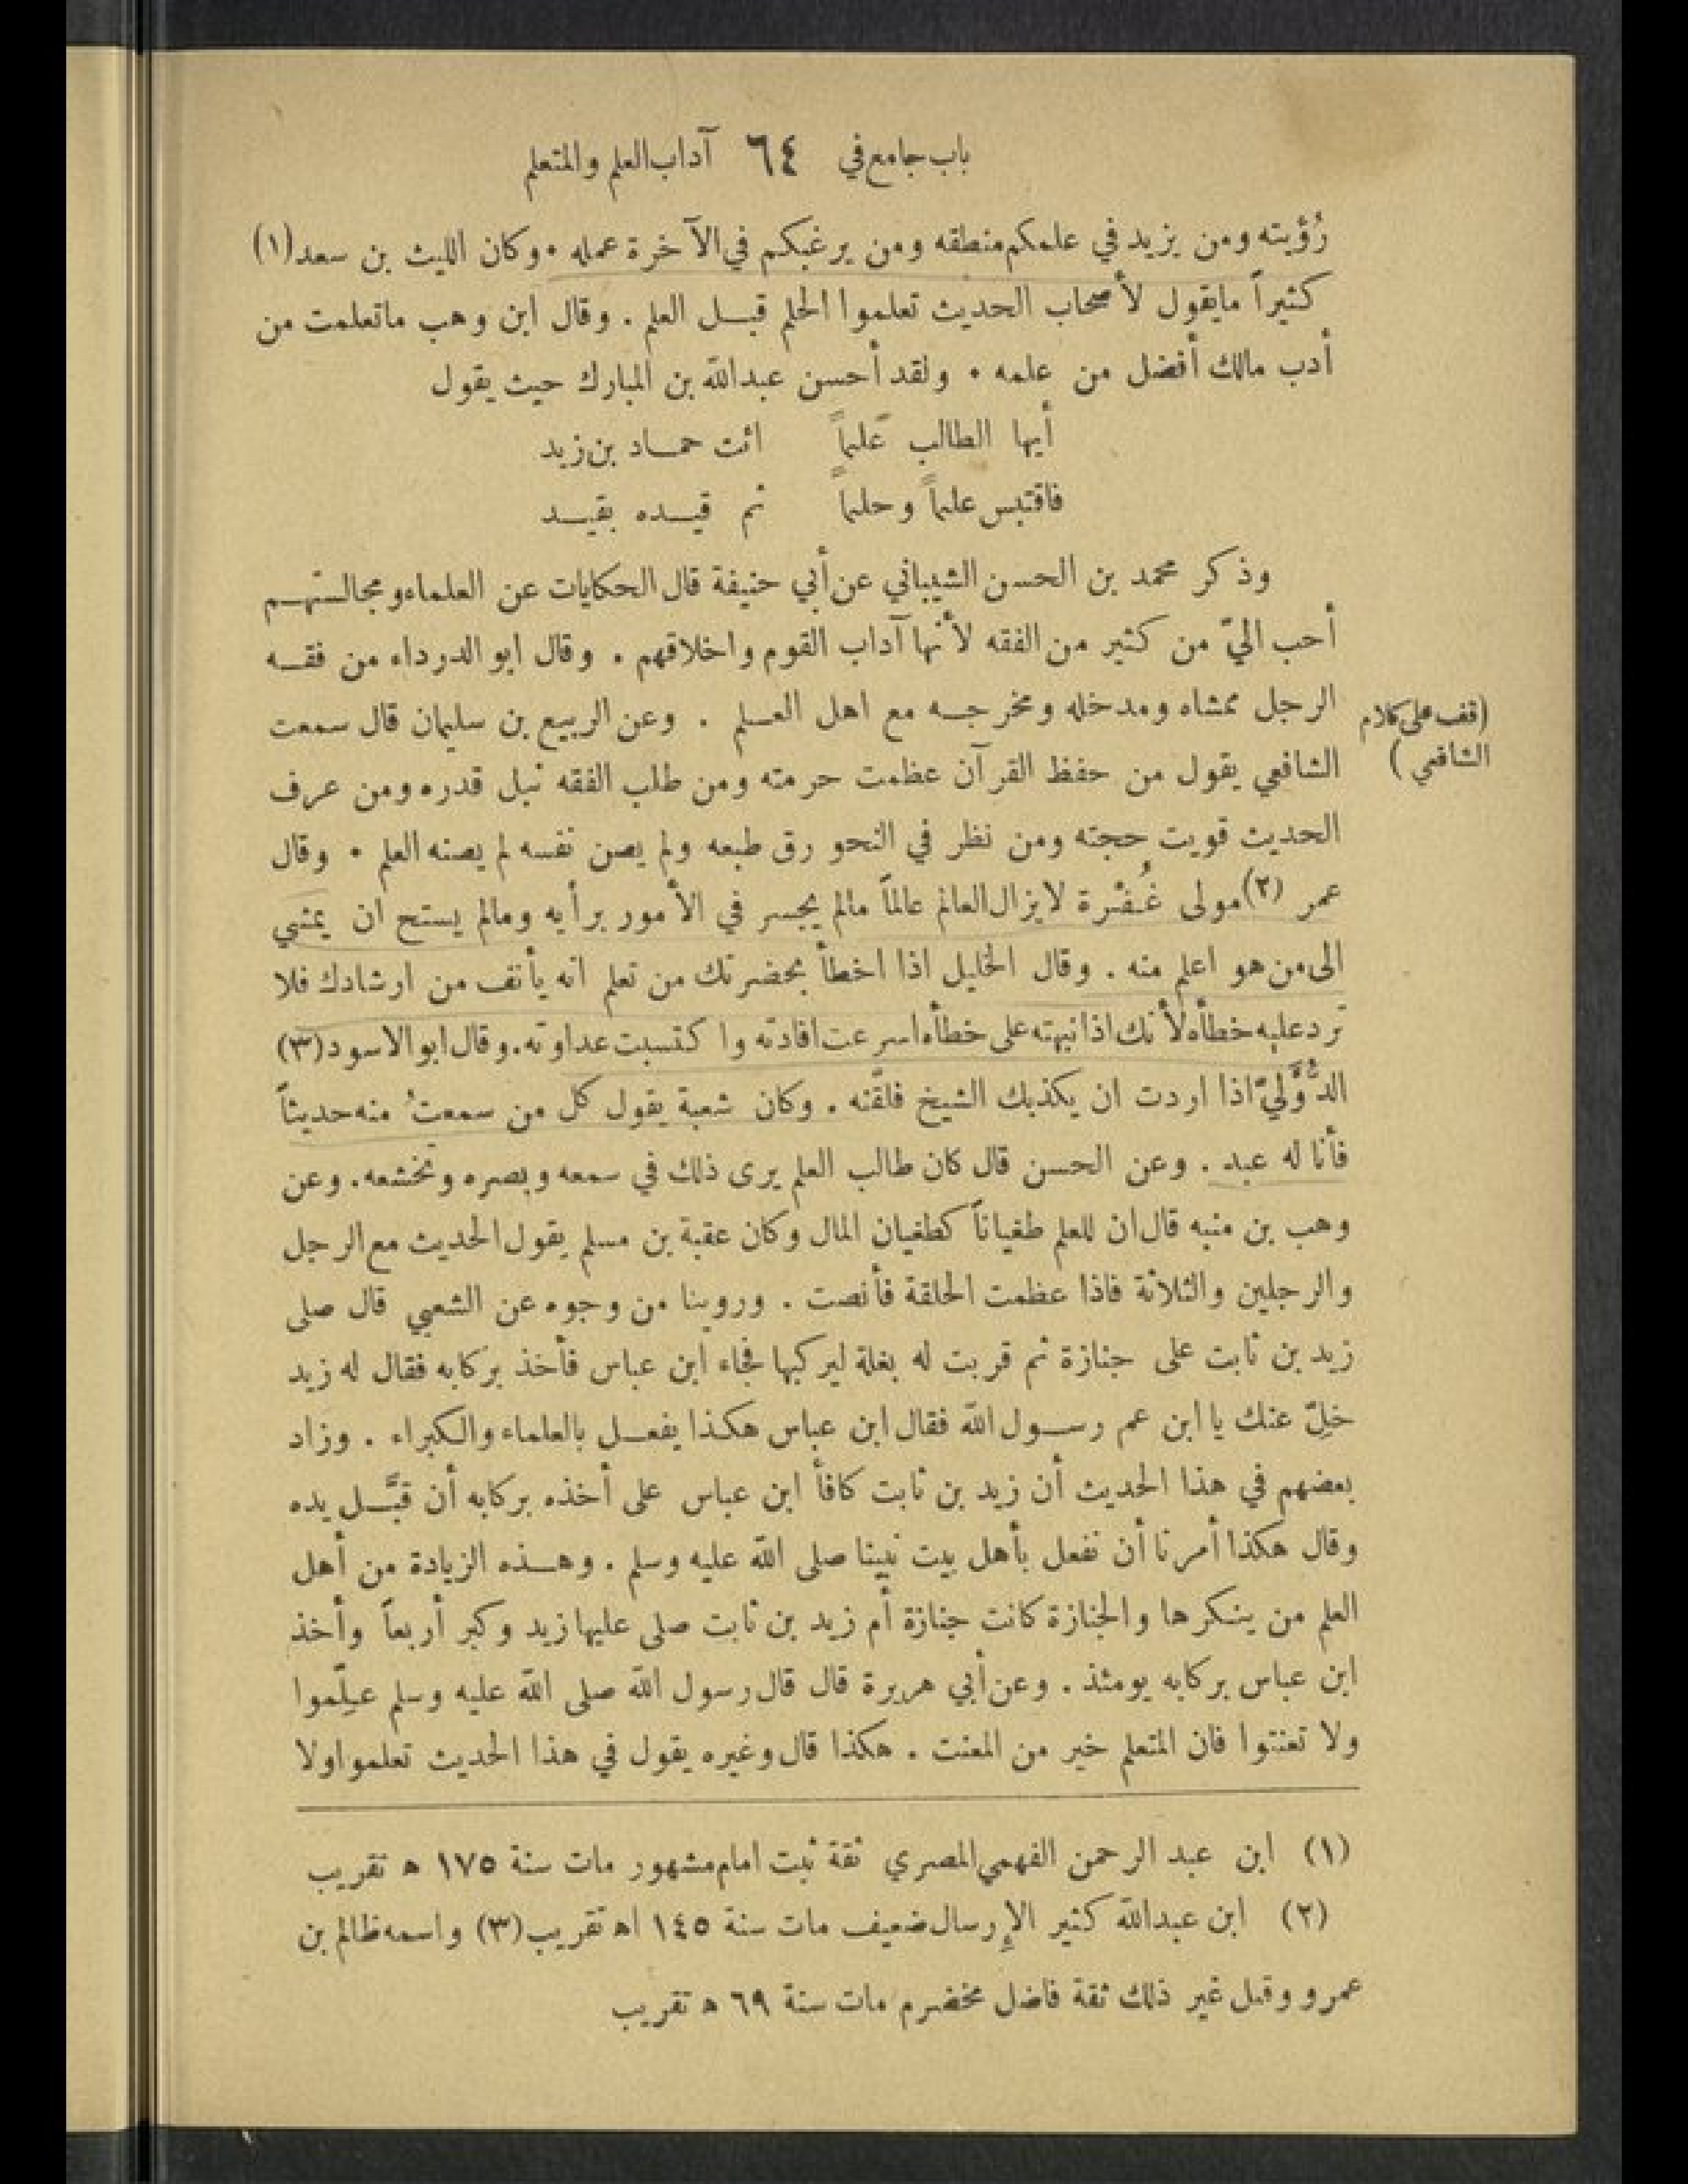 باب جامع في ٦٤ آداب العلم والمتعلم
رُؤيته ومن يزيد في علمكم منطقه ومن يرغبكم في الآخرة عمله • وكان الليث بن سعد (١)
كثيراً مايقول لأصحاب الحديث تعلموا الحلم قبل العلم . وقال ابن وهب ماتعلمت من
أدب مالك أفضل من علمه • ولقد أحسن عبدالله بن المبارك حيث يقول
أيها الطالب علماً ائت حماد بن زيد
فاقتبس علماً وحلماً ثم قيده بقيد
وذكر محمد بن الحسن الشيباني عن أبي حنيفة قال الحكايات عن العلماء ومجالستهم
أحب اليّ من كثير من الفقه لأنها آداب القوم واخلاقهم . وقال ابو الدرداء من فقه
الرجل ممشاه ومدخله ومخرجه مع اهل العلم . وعن الربيع بن سليمان قال سمعت
(قف على كلام
الشافعي )
الشافعي يقول من حفظ القرآن عظمت حرمته ومن طلب الفقه نبل قدره ومن عرف
الحديث قويت حجته ومن نظر في النحو رق طبعه ولم يصن نفسه لم يصنه العلم • وقال
عمر (٢) مولى غُفْرة لايزال العالم عالماً مالم يجسر في الأمور برأيه ومالم يستح ان يمشي
الى من هو اعلم منه . وقال الخليل اذا اخطأ بحضرتك من تعلم انه يأنف من ارشادك فلا
ترد عليه خطأه لأنك اذا نبهته على خطأه اسرعت افادته واكتسبت عداوته . وقال ابو الاسود (٣)
الدُّؤَليّ اذا اردت ان يكذبك الشيخ فلقّنه . وكان شعبة يقول كل من سمعتُ منه حديثاً
فأنا له عبد . وعن الحسن قال كان طالب العلم يرى ذلك في سمعه وبصره وتخشعه . وعن
وهب بن منبه قال ان للعلم طغياناً كطغيان المال وكان عقبة بن مسلم يقول الحديث مع الرجل
والرجلين والثلاثة فاذا عظمت الحلقة فأنصت . وروينا من وجوه عن الشعبي قال صلى
زيد بن ثابت على جنازة ثم قربت له بغلة ليركبها فجاء ابن عباس فأخذ بركابه فقال له زيد
خلِّ عنك يا ابن عم رسول الله فقال ابن عباس هكذا يفعل بالعلماء والكبراء . وزاد
بعضهم في هذا الحديث أن زيد بن ثابت كافأ ابن عباس على أخذه بركابه أن قبَّل يده
وقال هكذا أمرنا أن نفعل بأهل بيت نبينا صلى الله عليه وسلم . وهذه الزيادة من أهل
العلم من ينكرها والجنازة كانت جنازة أم زيد بن ثابت صلى عليها زيد وكبر أربعاً وأخذ
ابن عباس بركابه يومئذ . وعن أبي هريرة قال قال رسول الله صلى الله عليه وسلم علِّموا
ولا تعنتوا فان المتعلم خير من المعنت . هكذا قال وغيره يقول في هذا الحديث تعلموا ولا
(١) ابن عبد الرحمن الفهمي المصري ثقة ثبت امام مشهور مات سنة ١٧٥ ه تقريب
(٢) ابن عبدالله كثير الإرسال ضعيف مات سنة ١٤٥ اه تقريب (٣) واسمه ظالم بن
عمرو وقيل غير ذلك ثقة فاضل مخضرم مات سنة ٦٩ ه تقريب